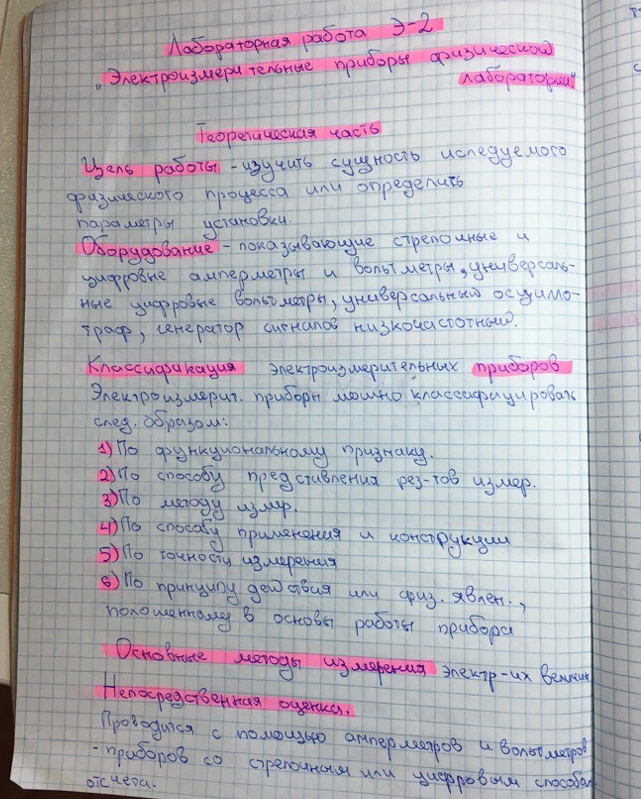 Лабораторная работа Э-2
"Электроизмерительные приборы физической
лаборатории"
Теоретическая часть
Цель работы - изучить сущность иследуемого
физического процесса или определить
параметры установки.
Оборудование - показывающие стрелочные и
цифровые амперметры и вольтметры, универсаль-
ные цифровые вольтметры, универсальный осцило-
граф, генератор сигналов низкочастотный.
Классификация электроизмерительных приборов
Электроизмерит. приборы можно классифицировать
след. образом:
1) По функциональному признаку.
2) По способу предствления рез-тов измер.
3) По методу измер.
4) По способу применения и конструкции
5) По точности измерения
6) По принципу действия или физ. явлен.,
положенному в основы работы прибора
Основные методы измерения электр-их величин
Непосредственная оценка.
Проводится с помощью амперметров и вольтметров
- приборов со стрелочным или цифровым способом
отсчета.